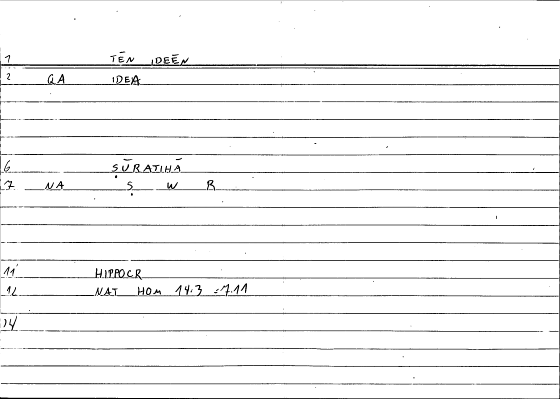 1 TĒN IDEĒN
2 GA IDEA
6 ṢŪRATIHĀ
7 NA Ṣ W R
11 HIPPOCR
12 NAT HOM 14.3 =7.11
14